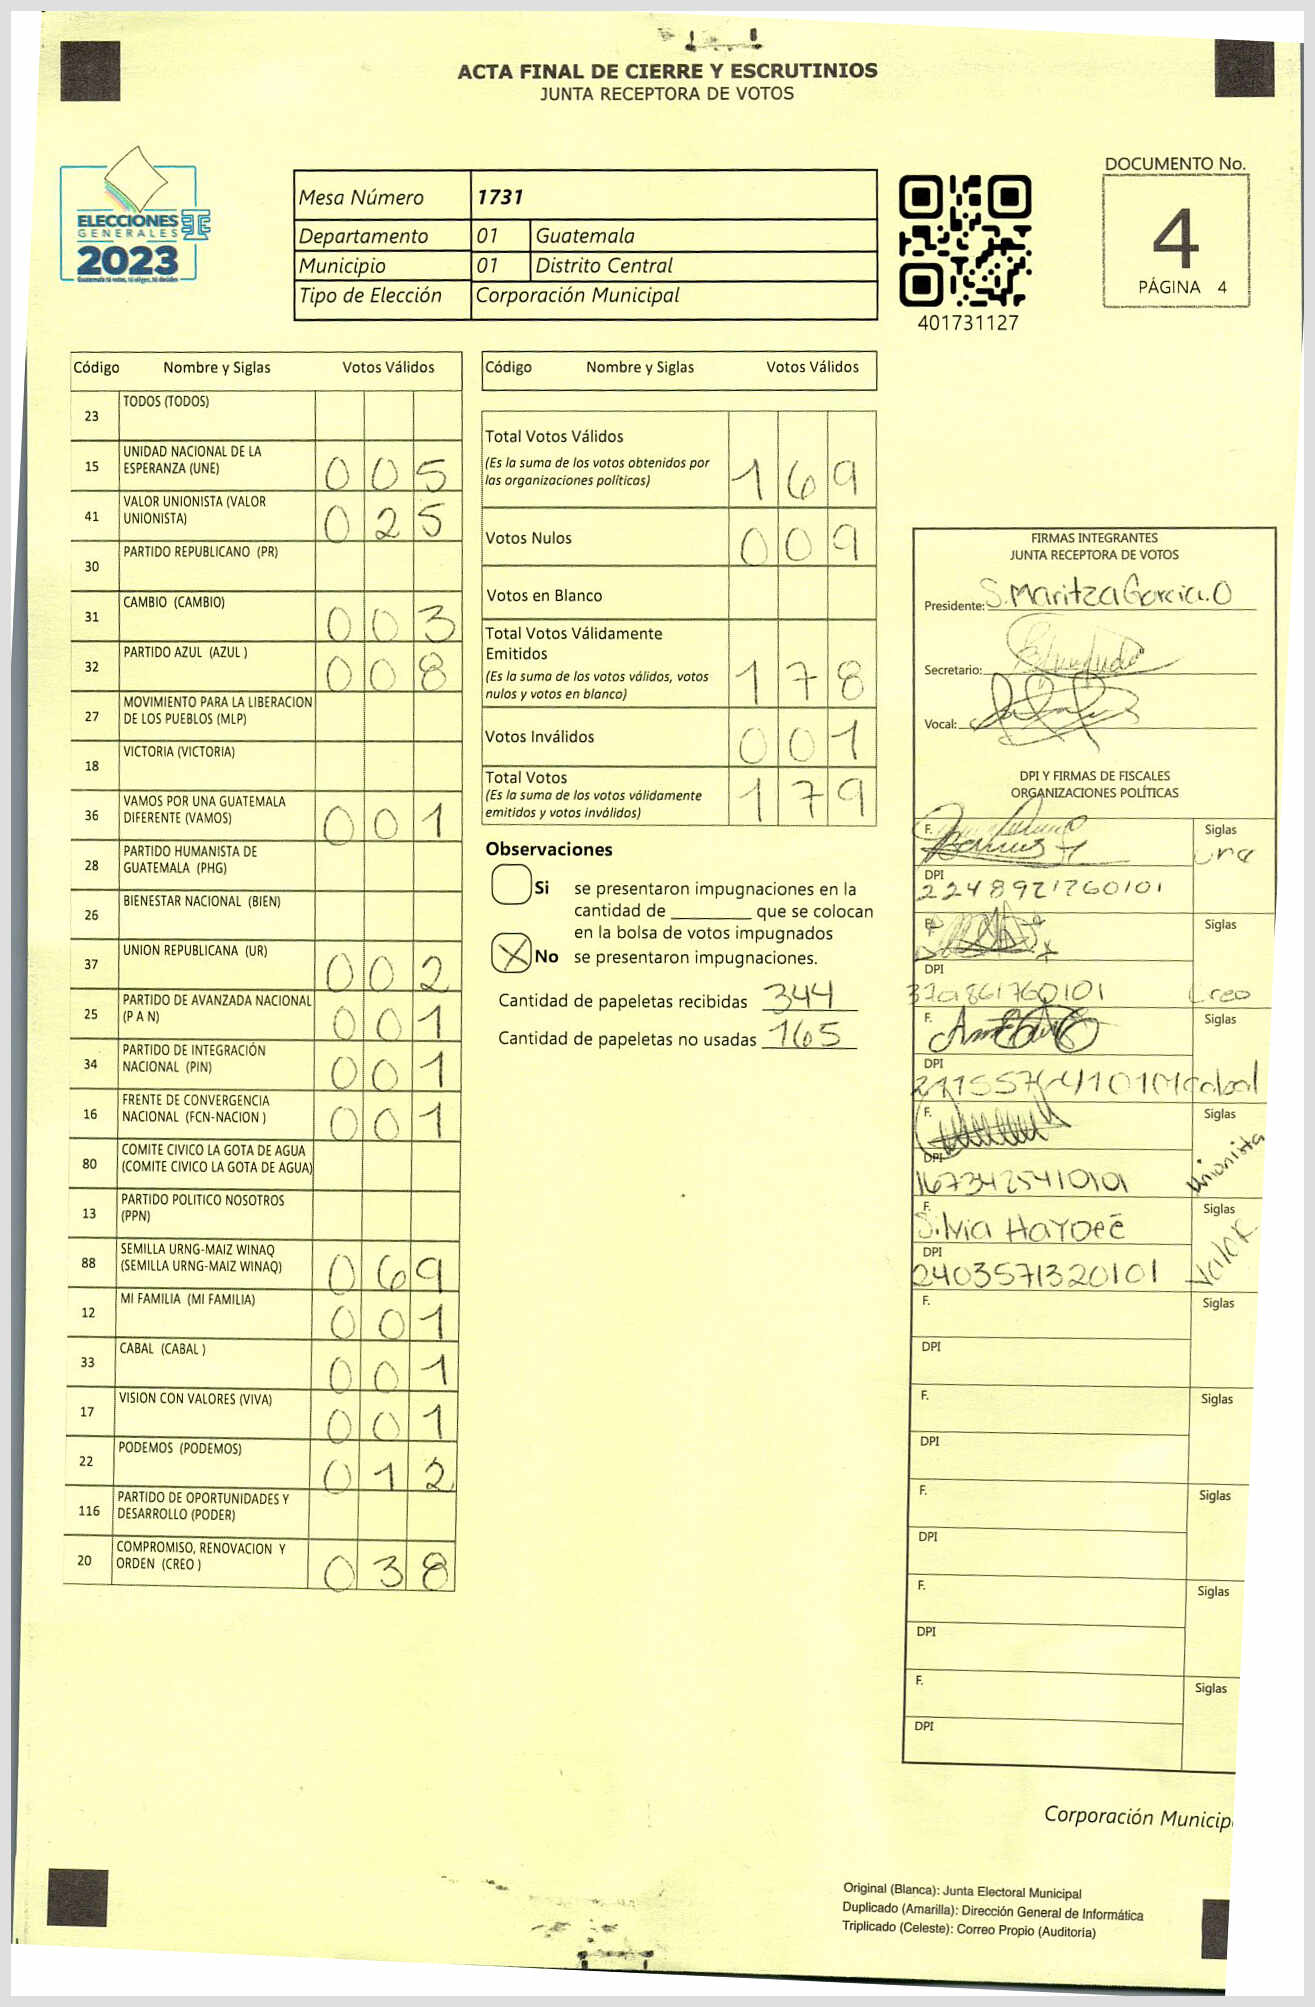 ACTA FINAL DE CIERRE Y ESCRUTINIOS
JUNTA RECEPTORA DE VOTOS
ELECCIONES
GENERALES
2023
Mesa Número 1731
Departamento 01 Guatemala
Municipio 01 Distrito Central
Tipo de Elección Corporación Municipal
401731127
DOCUMENTO No.
4
PÁGINA 4
Código Nombre y Siglas Votos Válidos
23 TODOS (TODOS)
15 UNIDAD NACIONAL DE LA
ESPERANZA (UNE) 0 0 5
41 VALOR UNIONISTA (VALOR
UNIONISTA) 0 2 5
30 PARTIDO REPUBLICANO (PR)
31 CAMBIO (CAMBIO) 0 0 3
32 PARTIDO AZUL (AZUL ) 0 0 8
27 MOVIMIENTO PARA LA LIBERACION
DE LOS PUEBLOS (MLP)
18 VICTORIA (VICTORIA)
36 VAMOS POR UNA GUATEMALA
DIFERENTE (VAMOS) 0 0 1
28 PARTIDO HUMANISTA DE
GUATEMALA (PHG)
26 BIENESTAR NACIONAL (BIEN)
37 UNION REPUBLICANA (UR) 0 0 2
25 PARTIDO DE AVANZADA NACIONAL
(P A N) 0 0 1
34 PARTIDO DE INTEGRACIÓN
NACIONAL (PIN) 0 0 1
16 FRENTE DE CONVERGENCIA
NACIONAL (FCN-NACION ) 0 0 1
80 COMITE CIVICO LA GOTA DE AGUA
(COMITE CIVICO LA GOTA DE AGUA)
13 PARTIDO POLITICO NOSOTROS
(PPN)
88 SEMILLA URNG-MAIZ WINAQ
(SEMILLA URNG-MAIZ WINAQ) 0 6 9
12 MI FAMILIA (MI FAMILIA) 0 0 1
33 CABAL (CABAL ) 0 0 1
17 VISION CON VALORES (VIVA) 0 0 1
22 PODEMOS (PODEMOS) 0 1 2
116 PARTIDO DE OPORTUNIDADES Y
DESARROLLO (PODER)
20 COMPROMISO, RENOVACION Y
ORDEN (CREO ) 0 3 8
Código Nombre y Siglas Votos Válidos
Total Votos Válidos
(Es la suma de los votos obtenidos por
las organizaciones políticas) 1 6 9
Votos Nulos 0 0 9
Votos en Blanco
Total Votos Válidamente
Emitidos
(Es la suma de los votos válidos, votos
nulos y votos en blanco) 1 7 8
Votos Inválidos 0 0 1
Total Votos
(Es la suma de los votos válidamente
emitidos y votos inválidos) 1 7 9
Observaciones
Si se presentaron impugnaciones en la
cantidad de ________ que se colocan
en la bolsa de votos impugnados
X No se presentaron impugnaciones.
Cantidad de papeletas recibidas 344
Cantidad de papeletas no usadas 165
FIRMAS INTEGRANTES
JUNTA RECEPTORA DE VOTOS
Presidente: S. Maritza Garcia. O
Secretario:
Vocal:
DPI Y FIRMAS DE FISCALES
ORGANIZACIONES POLÍTICAS
F. Siglas
DPI
F. Siglas
DPI Creo
F. Siglas
DPI
F. Siglas
DPI Unionista
1673425410101
F. Siglas
Silvia Haydeé
DPI Valor
2403571320101
F. Siglas
DPI
F. Siglas
DPI
F. Siglas
DPI
F. Siglas
DPI
F. Siglas
DPI
Corporación Municip
Original (Blanca): Junta Electoral Municipal
Duplicado (Amarilla): Dirección General de Informática
Triplicado (Celeste): Correo Propio (Auditoría)